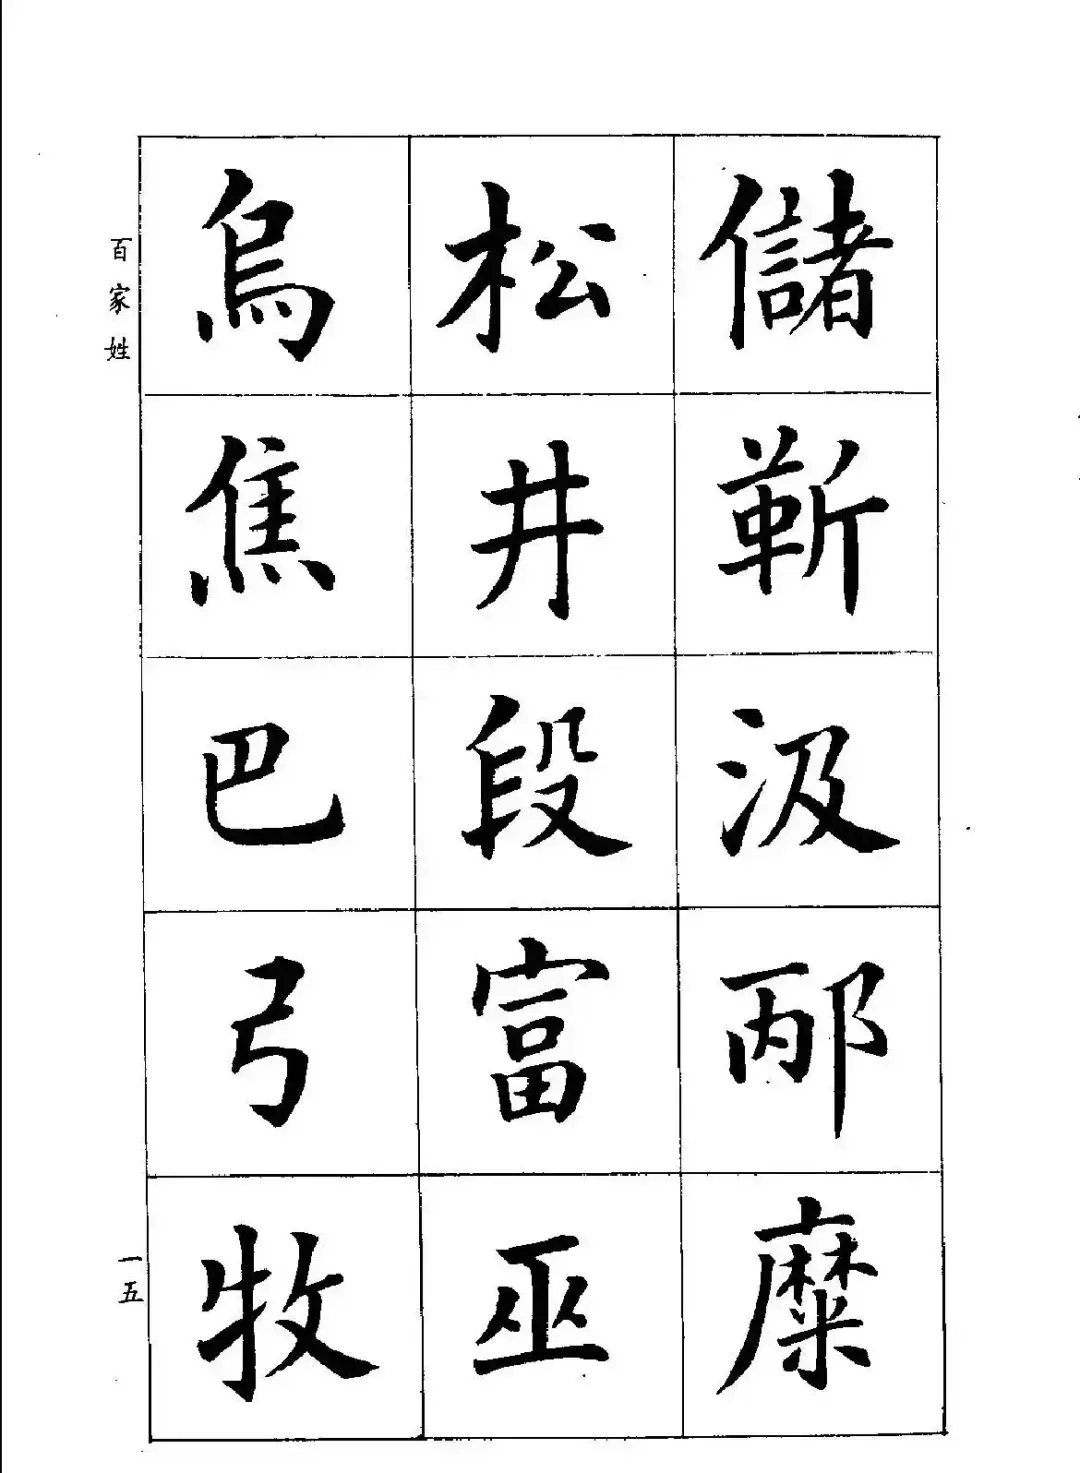 儲靳汲邴糜
松井段富巫
烏焦巴弓牧
百家姓
一五